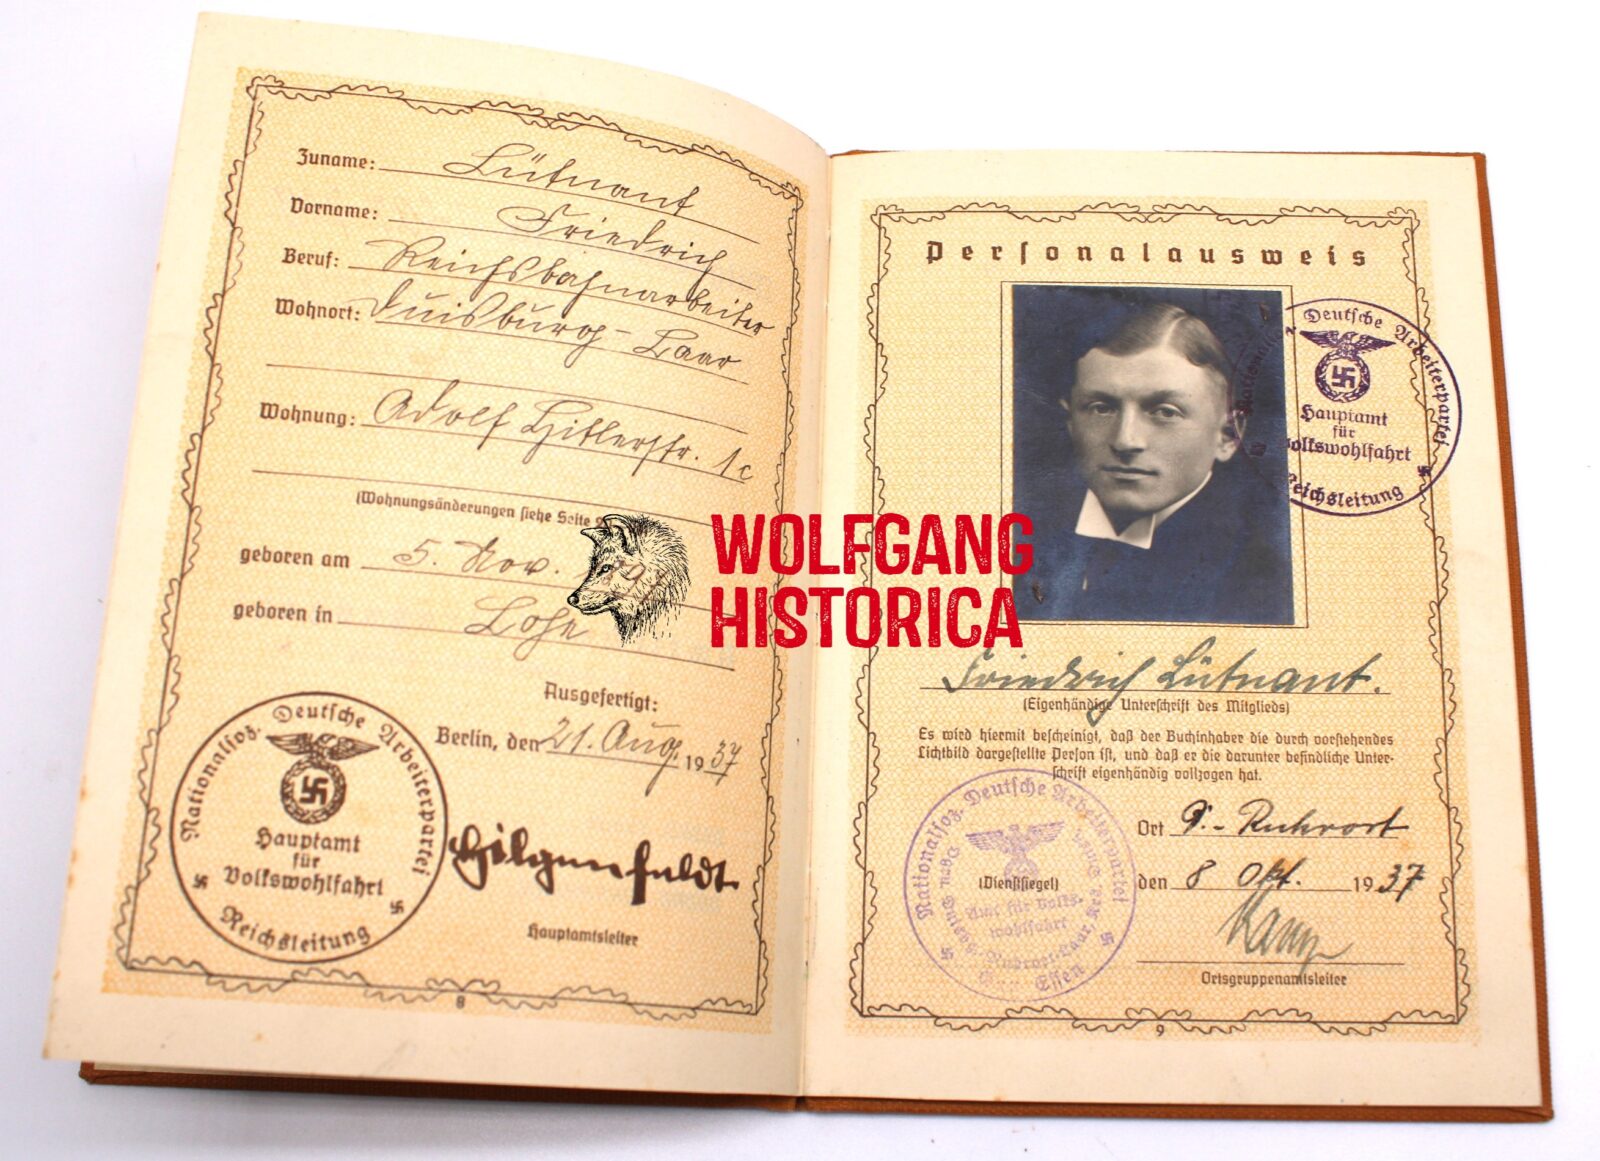 Zuname: Lütnant
Vorname: Friedrich
Beruf: Reichsbahnarbeiter
Wohnort: Duisburg-Laar
Wohnung: Adolf Hitlerstr. 1c
(Wohnungsänderungen siehe Seite
geboren am 5. Nov.
geboren in Lohe
Ausgefertigt:
Berlin, den 21. Aug. 1937
Nationalsoz. Deutsche Arbeiterpartei
Hauptamt
für
Volkswohlfahrt
Reichsleitung
Hilgenfeldt.
Hauptamtsleiter
8
WOLFGANG
HISTORICA
Personalausweis
Deutsche Arbeiterpartei
Hauptamt
für
Volkswohlfahrt
Reichsleitung
Friedrich Lütnant.
(Eigenhändige Unterschrift des Mitglieds)
Es wird hiermit bescheinigt, daß der Buchinhaber die durch vorstehendes
Lichtbild dargestellte Person ist, und daß er die darunter befindliche Unter-
schrift eigenhändig vollzogen hat.
Nationalsoz. Deutsche Arbeiterpartei
Amt für Volks-
wohlfahrt
Gau Essen
Ort D.-Ruhrort
(Dienstsiegel)
den 8 Okt. 1937
Ortsgruppenamtsleiter
9